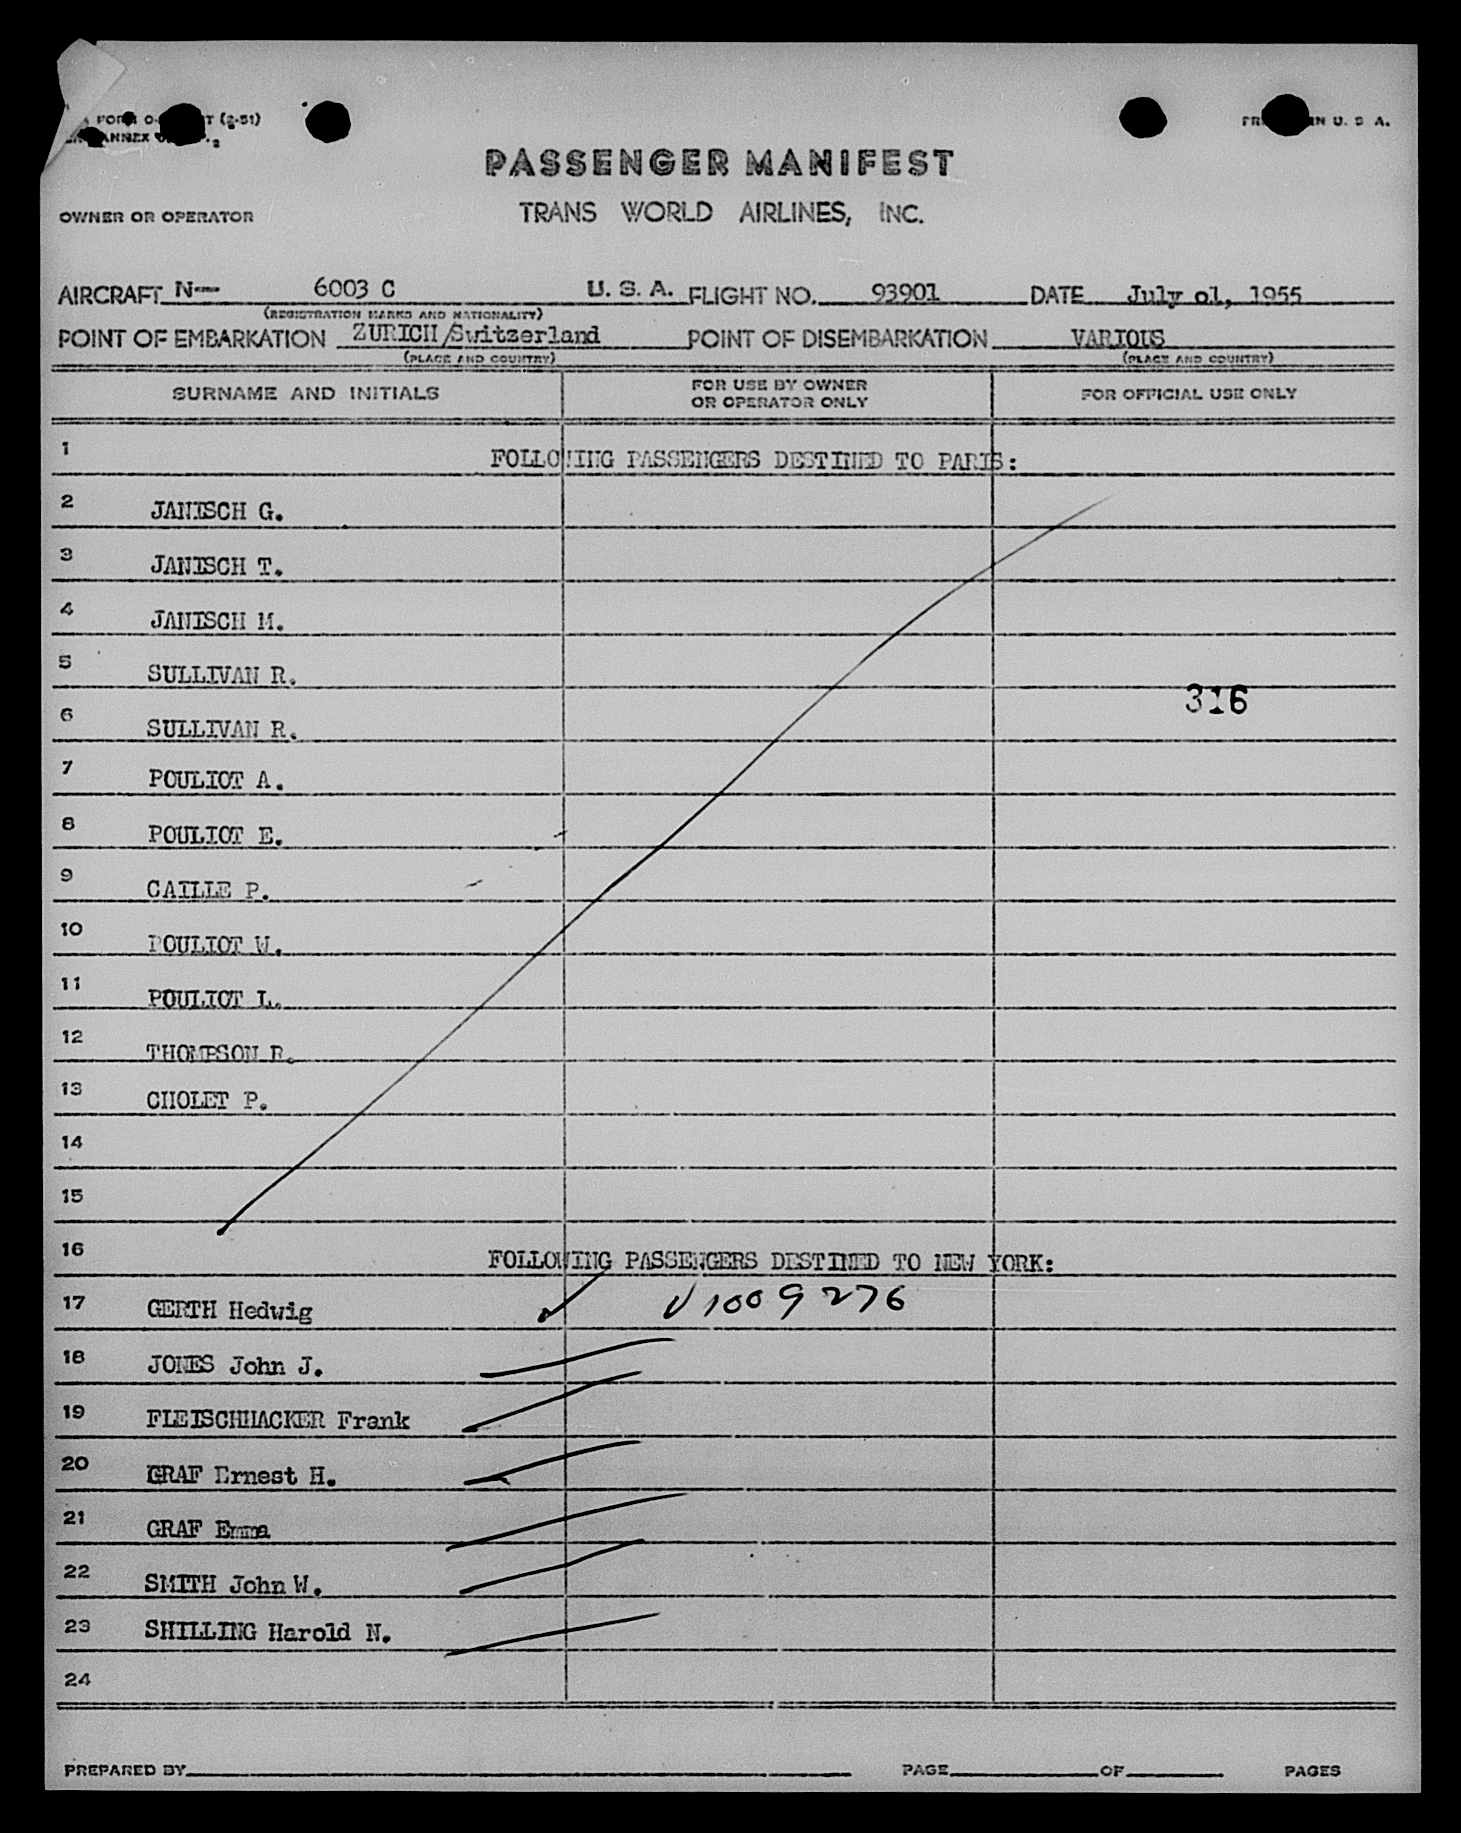 FORM O- T (2-51)
ANNEX
IN U. S. A.
PASSENGER MANIFEST
OWNER OR OPERATOR TRANS WORLD AIRLINES, INC.
AIRCRAFT N-- 6003 C U. S. A. FLIGHT NO. 93901 DATE July 01, 1955
(REGISTRATION MARKS AND NATIONALITY)
POINT OF EMBARKATION ZURICH/Switzerland POINT OF DISEMBARKATION VARIOUS
(PLACE AND COUNTRY) (PLACE AND COUNTRY)
SURNAME AND INITIALS FOR USE BY OWNER OR OPERATOR ONLY FOR OFFICIAL USE ONLY
1 FOLLOWING PASSENGERS DESTINED TO PARIS:
2 JANISCH G.
3 JANISCH T.
4 JANISCH M.
5 SULLIVAN R.
316
6 SULLIVAN R.
7 POULIOT A.
8 POULIOT E.
9 CAILLE P.
10 POULIOT W.
11 POULIOT L.
12 THOMPSON R.
13 CHOLET P.
14
15
16 FOLLOWING PASSENGERS DESTINED TO NEW YORK:
17 GERTH Hedwig V1009276
18 JONES John J.
19 FLEISCHHACKER Frank
20 GRAF Ernest H.
21 GRAF Emma
22 SMITH John W.
23 SHILLING Harold N.
24
PREPARED BY PAGE OF PAGES